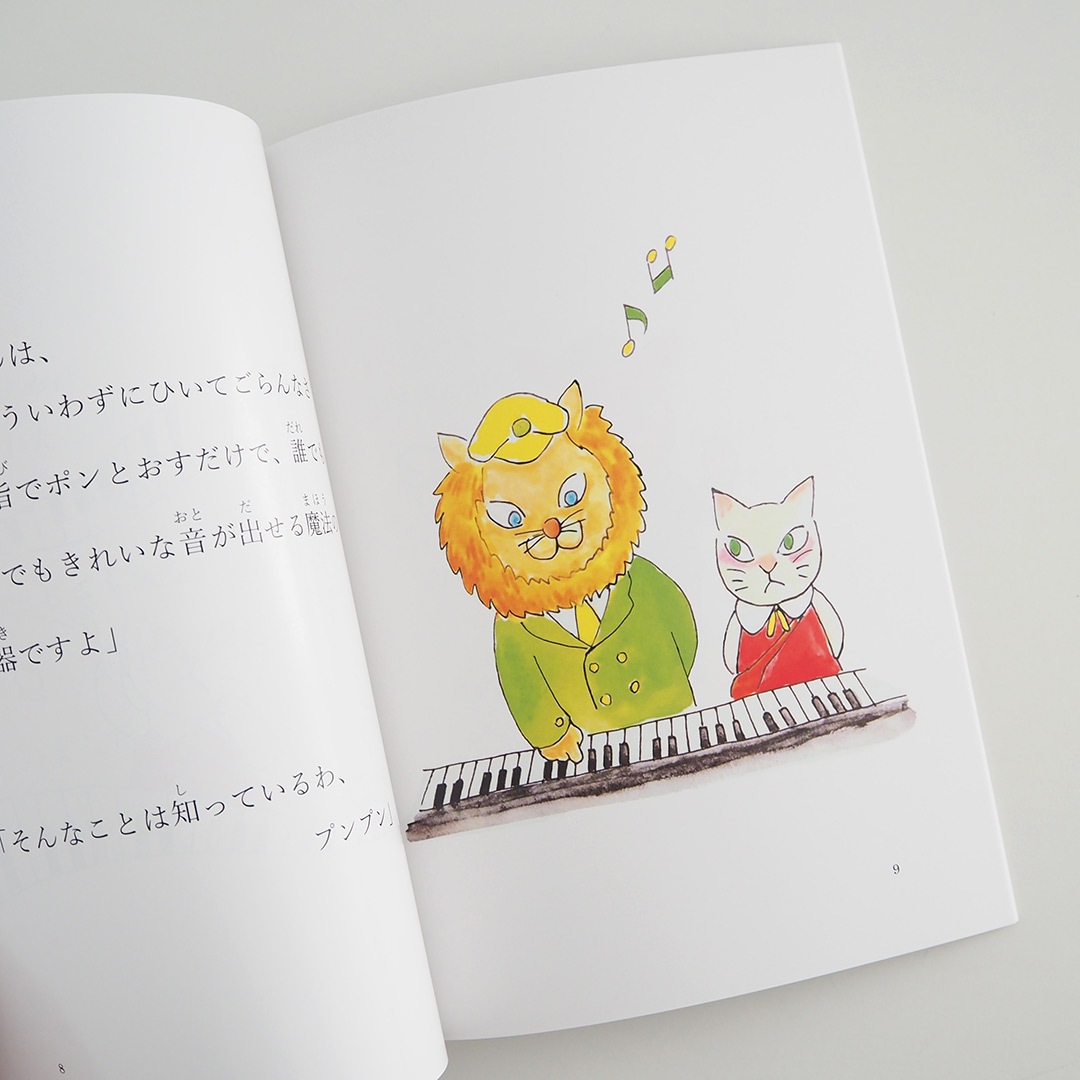 は、
ういわずにひいてごらんなさ
でポンとおすだけで、誰で
でもきれいな音が出せる魔法の
器ですよ」
「そんなことは知っているわ、
プンプン」
8
9